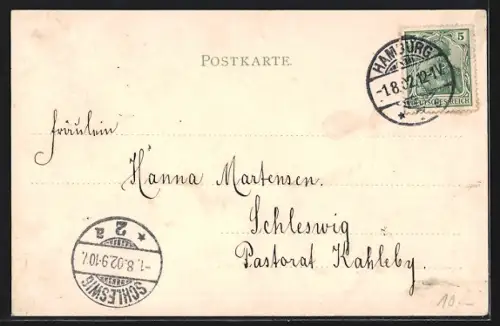 POSTKARTE.
5
HAMBURG
-1.8.02.12-1V.
DEUTSCHES REICH
Fräulein
Hanna Martensen.
Schleswig
Pastorat Kahleby.
* 2a
-1.8.02.9-10V.
SCHLESWIG
10.-